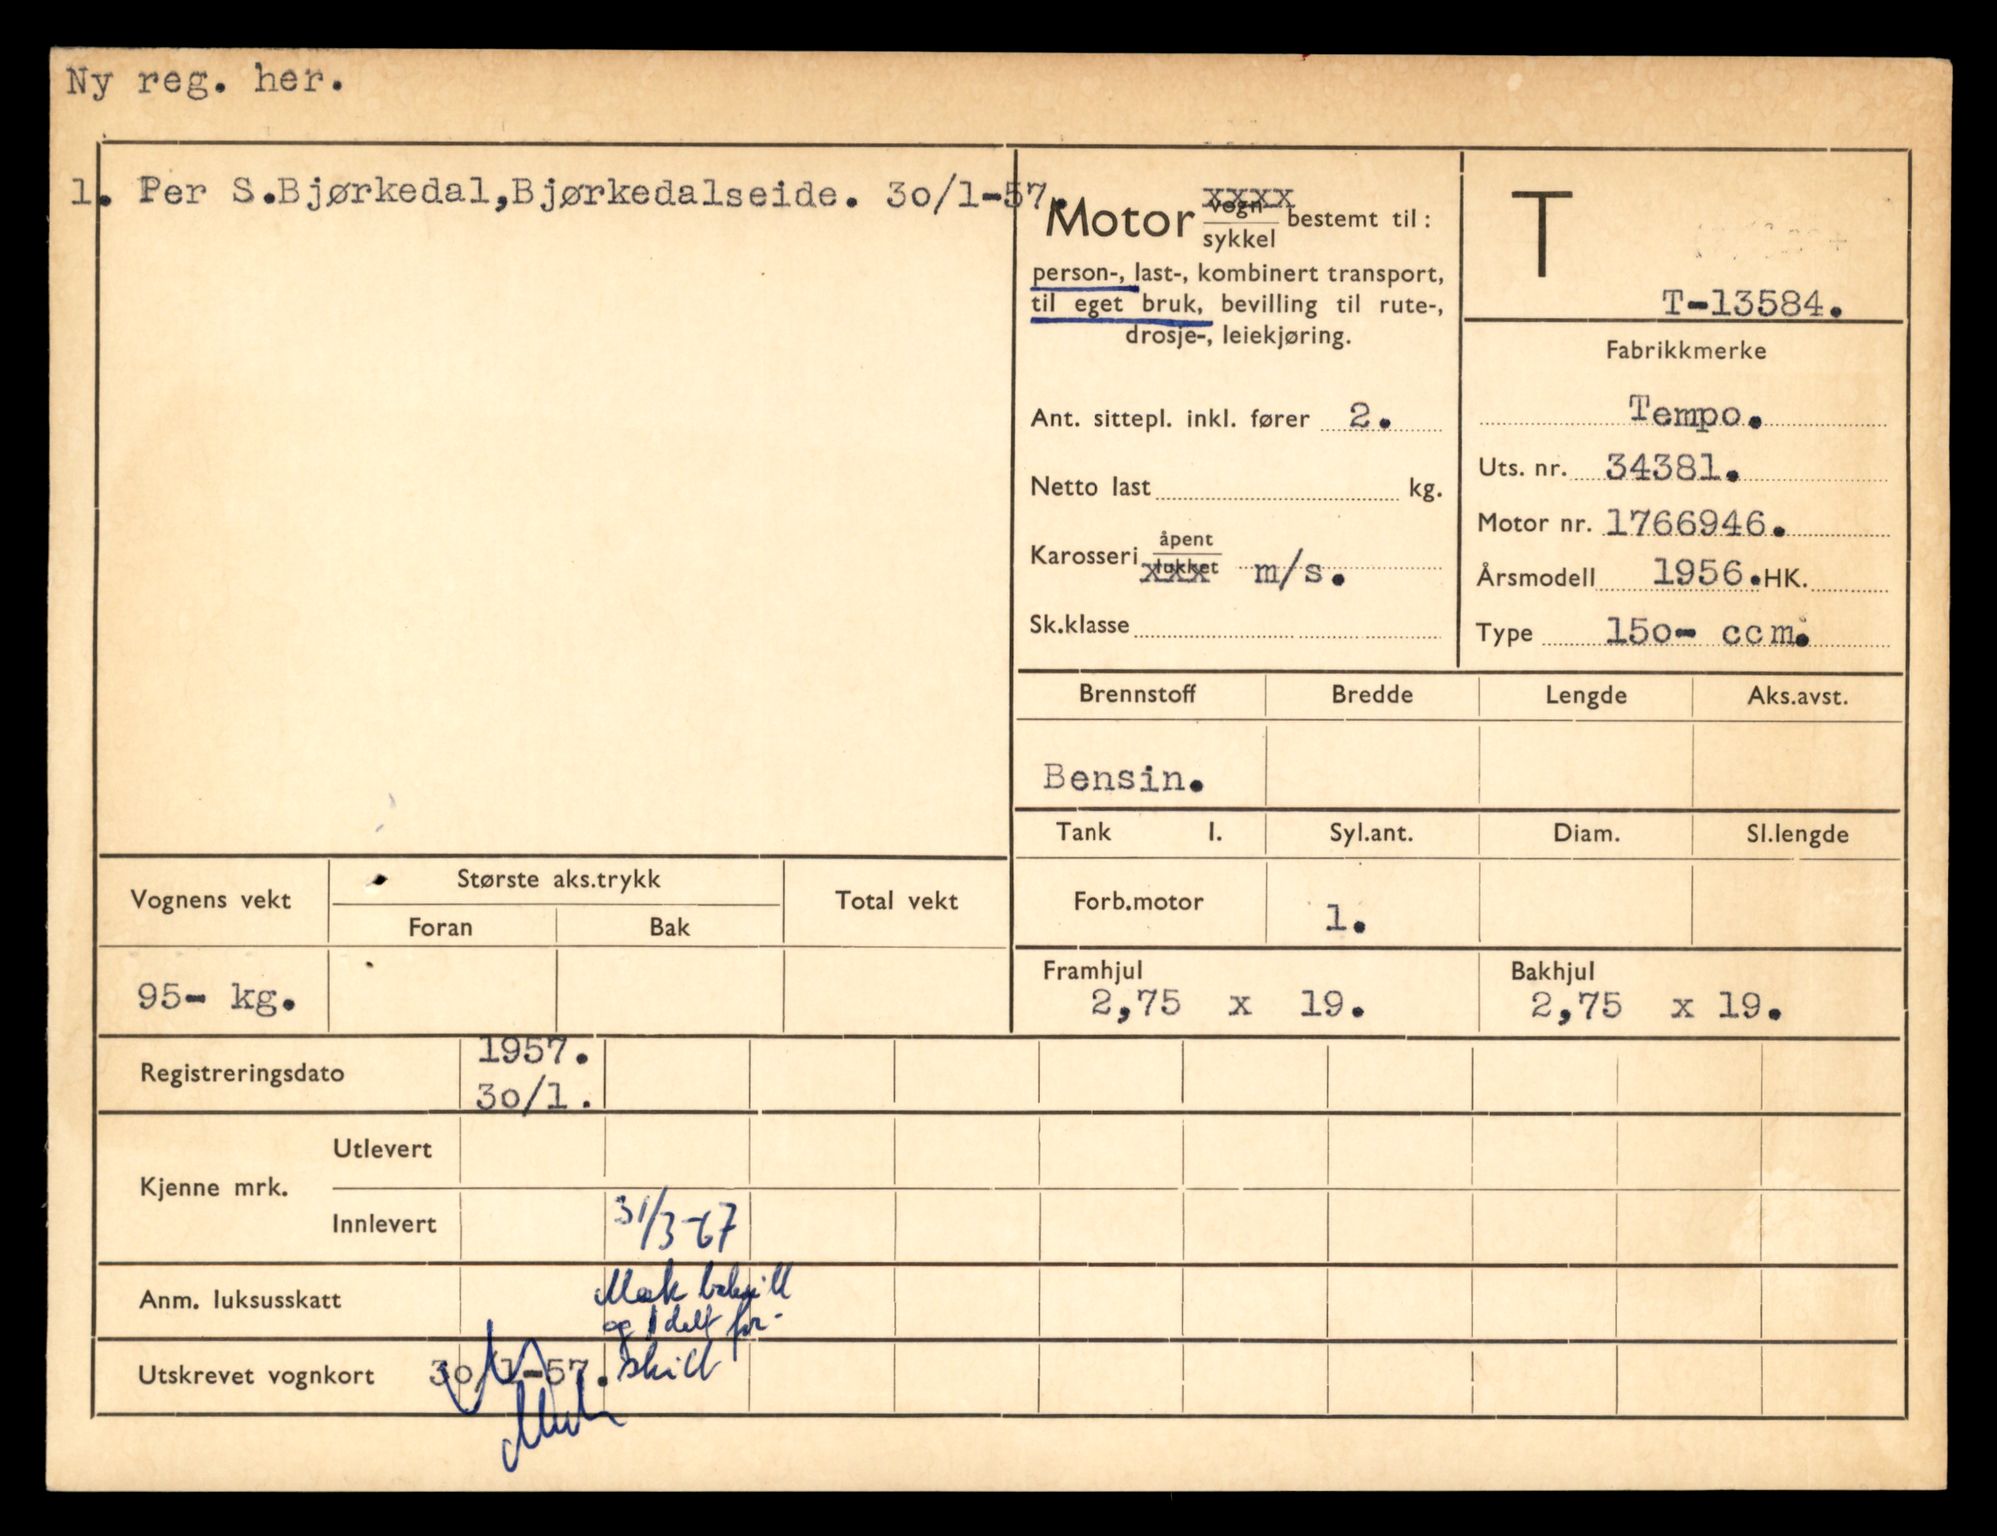 Ny reg. her.
1. Per S.Bjørkedal,Bjørkedalseide. 30/1-57.
Motor vogn xxxx / sykkel bestemt til :
person-, last-, kombinert transport,
til eget bruk, bevilling til rute-,
drosje-, leiekjøring.
Ant. sittepl. inkl. fører 2.
Netto last kg.
Karosseri åpent / lukket xxx m/s.
Sk.klasse
T
T-13584.
Fabrikkmerke
Tempo.
Uts. nr. 34381.
Motor nr. 1766946.
Årsmodell 1956. HK.
Type 150- ccm.
Brennstoff Bredde Lengde Aks.avst.
Bensin.
Tank l. Syl.ant. Diam. Sl.lengde
Forb.motor 1.
Framhjul Bakhjul
2,75 x 19. 2,75 x 19.
Vognens vekt Største aks.trykk Total vekt
Foran Bak
95- kg.
Registreringsdato 1957.
30/1.
Kjenne mrk. Utlevert
Innlevert 31/3-67
Anm. luksusskatt
og 1 delt for-
skilt
Utskrevet vognkort 30/1-57.